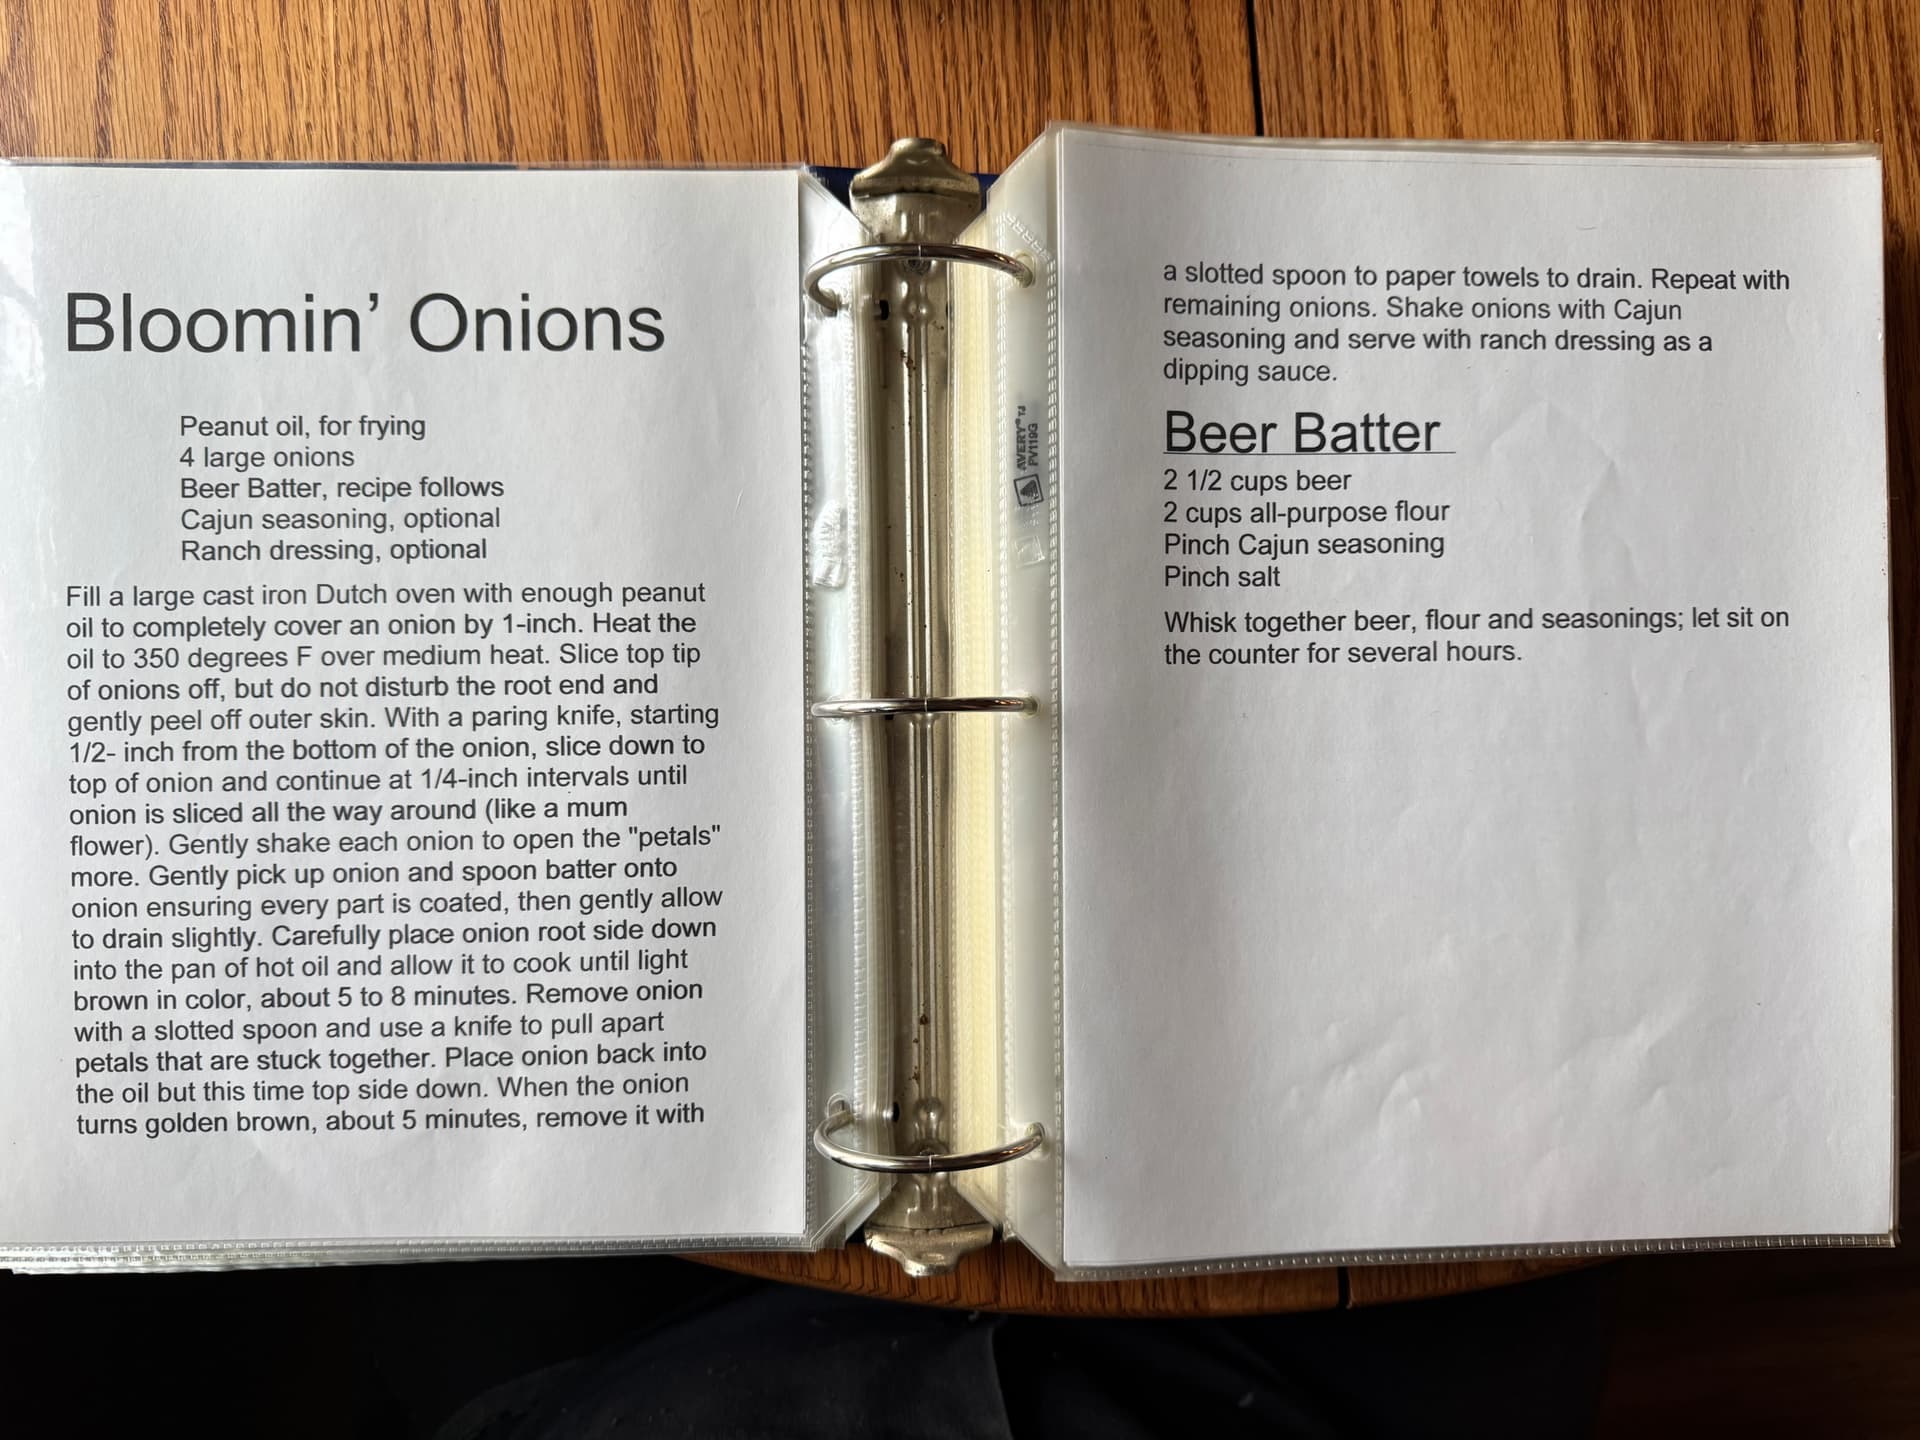 Bloomin’ Onions
Peanut oil, for frying
4 large onions
Beer Batter, recipe follows
Cajun seasoning, optional
Ranch dressing, optional
Fill a large cast iron Dutch oven with enough peanut
oil to completely cover an onion by 1-inch. Heat the
oil to 350 degrees F over medium heat. Slice top tip
of onions off, but do not disturb the root end and
gently peel off outer skin. With a paring knife, starting
1/2- inch from the bottom of the onion, slice down to
top of onion and continue at 1/4-inch intervals until
onion is sliced all the way around (like a mum
flower). Gently shake each onion to open the "petals"
more. Gently pick up onion and spoon batter onto
onion ensuring every part is coated, then gently allow
to drain slightly. Carefully place onion root side down
into the pan of hot oil and allow it to cook until light
brown in color, about 5 to 8 minutes. Remove onion
with a slotted spoon and use a knife to pull apart
petals that are stuck together. Place onion back into
the oil but this time top side down. When the onion
turns golden brown, about 5 minutes, remove it with
AVERY®
PV119G
a slotted spoon to paper towels to drain. Repeat with
remaining onions. Shake onions with Cajun
seasoning and serve with ranch dressing as a
dipping sauce.
Beer Batter
2 1/2 cups beer
2 cups all-purpose flour
Pinch Cajun seasoning
Pinch salt
Whisk together beer, flour and seasonings; let sit on
the counter for several hours.